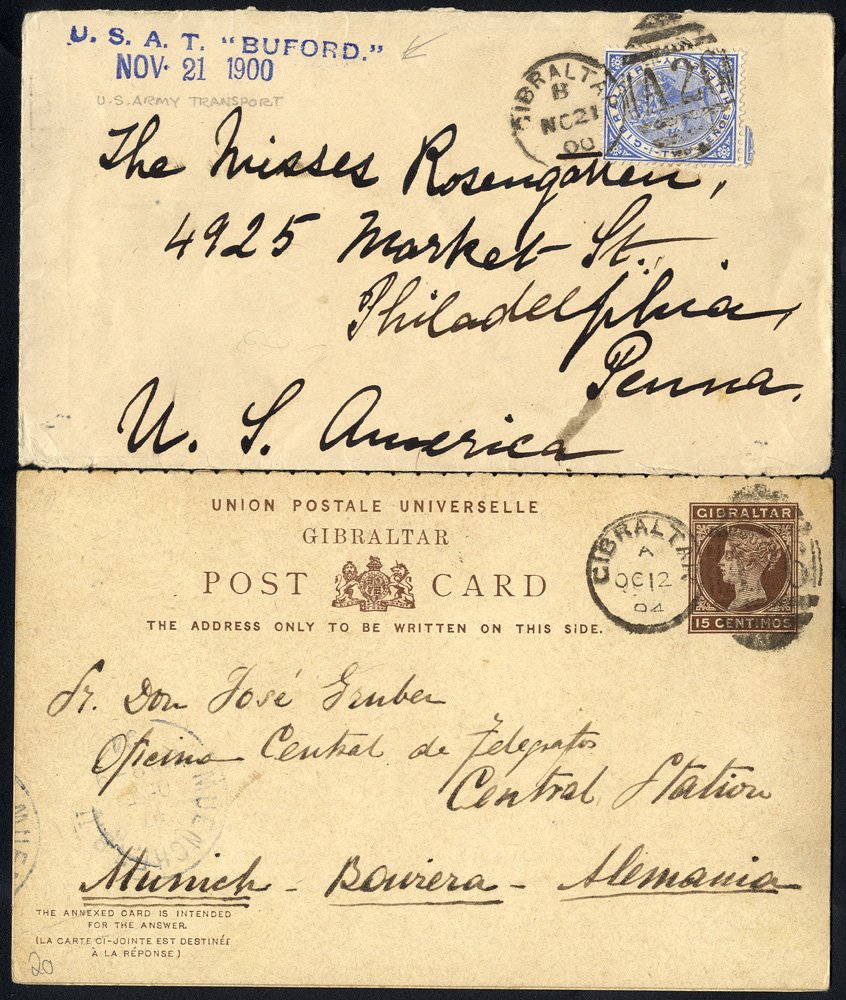 U. S. A. T. "BUFORD."
NOV. 21 1900
U.S. ARMY TRANSPORT
GIBRALTAR
B
NO 21
00
A26
The Misses Rosengarten,
4925 Market St.,
Philadelphia,
Penna.
U. S. America
UNION POSTALE UNIVERSELLE
GIBRALTAR
POST CARD
THE ADDRESS ONLY TO BE WRITTEN ON THIS SIDE.
GIBRALTAR
A
OC 12
94
GIBRALTAR
15 CENTIMOS
Sr. Don José Gruber
Oficina Central de Telegrafos
Central Station
Munich - Baviera - Alemania
THE ANNEXED CARD IS INTENDED
FOR THE ANSWER.
(LA CARTE CI-JOINTE EST DESTINÉE
À LA RÉPONSE)
20